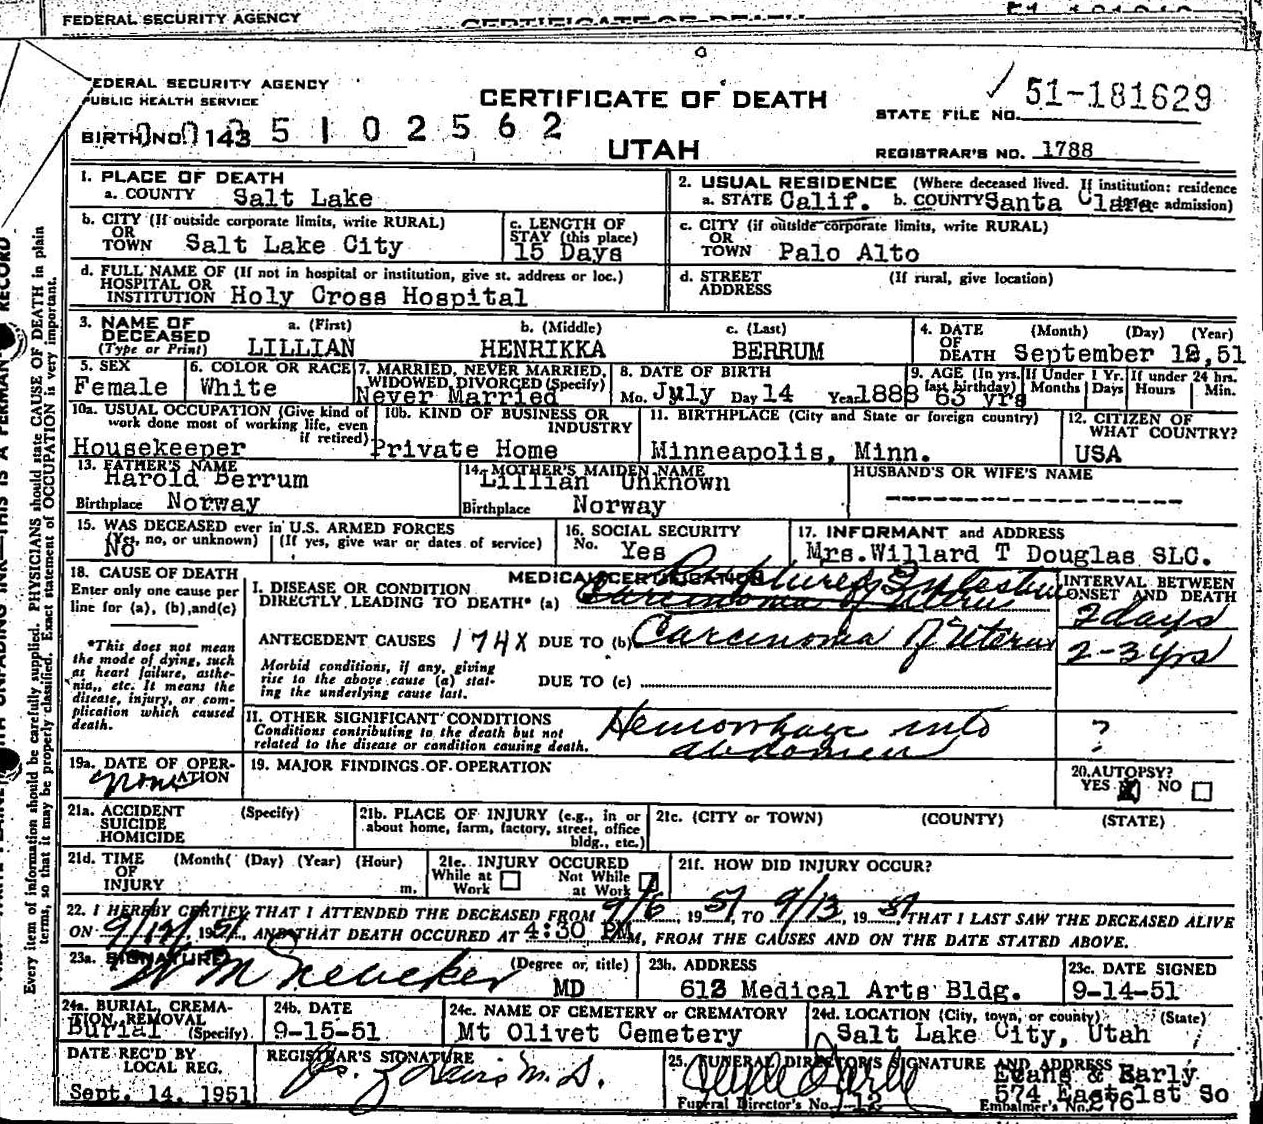 FEDERAL SECURITY AGENCY
CERTIFICATE OF DEATH
FEDERAL SECURITY AGENCY
PUBLIC HEALTH SERVICE
CERTIFICATE OF DEATH
UTAH
STATE FILE NO. 51-181629
BIRTH NO. 143 5 1 0 2 5 6 2
REGISTRAR'S NO. 1788
1. PLACE OF DEATH
a. COUNTY Salt Lake
2. USUAL RESIDENCE (Where deceased lived. If institution: residence
a. STATE Calif. b. COUNTY Santa Clara admission)
b. CITY (If outside corporate limits, write RURAL)
OR
TOWN Salt Lake City
c. LENGTH OF
STAY (this place)
15 Days
c. CITY (if outside corporate limits, write RURAL)
OR
TOWN Palo Alto
d. FULL NAME OF (If not in hospital or institution, give st. address or loc.)
HOSPITAL OR
INSTITUTION Holy Cross Hospital
d. STREET (If rural, give location)
ADDRESS
3. NAME OF DECEASED
(Type or Print)
a. (First) b. (Middle) c. (Last)
LILLIAN HENRIKKA BERRUM
4. DATE OF DEATH (Month) (Day) (Year)
September 12,51
5. SEX
Female
6. COLOR OR RACE
White
7. MARRIED, NEVER MARRIED,
WIDOWED, DIVORCED (Specify)
Never Married
8. DATE OF BIRTH
Mo. July Day 14 Year 1888
9. AGE (In yrs. last birthday) 63 yrs
If Under 1 Yr. Months Days
If under 24 hrs. Hours Min.
10a. USUAL OCCUPATION (Give kind of
work done most of working life, even
if retired)
Housekeeper
10b. KIND OF BUSINESS OR
INDUSTRY
Private Home
11. BIRTHPLACE (City and State or foreign country)
Minneapolis, Minn.
12. CITIZEN OF
WHAT COUNTRY?
USA
13. FATHER'S NAME
Harold Berrum
Birthplace Norway
14. MOTHER'S MAIDEN NAME
Lillian Unknown
Birthplace Norway
HUSBAND'S OR WIFE'S NAME
--------------------
15. WAS DECEASED ever in U.S. ARMED FORCES
(Yes, no, or unknown) (If yes, give war or dates of service)
No
16. SOCIAL SECURITY
No. Yes
17. INFORMANT and ADDRESS
Mrs. Willard T Douglas SLC.
18. CAUSE OF DEATH
Enter only one cause per
line for (a), (b), and (c)
*This does not mean
the mode of dying, such
as heart failure, asthe-
nia, etc. It means the
disease, injury, or com-
plication which caused
death.
MEDICAL CERTIFICATION
I. DISEASE OR CONDITION
DIRECTLY LEADING TO DEATH* (a) Carcinoma of Uterus
ANTECEDENT CAUSES 174X DUE TO (b) Carcinoma of Uterus
Morbid conditions, if any, giving
rise to the above cause (a) stat-
ing the underlying cause last.
DUE TO (c)
INTERVAL BETWEEN
ONSET AND DEATH
2 days
2-3 yrs
II. OTHER SIGNIFICANT CONDITIONS
Conditions contributing to the death but not
related to the disease or condition causing death.
Hemorrhage into
abdomen
?
19a. DATE OF OPER-
ATION
none
19. MAJOR FINDINGS OF OPERATION
20. AUTOPSY?
YES NO
21a. ACCIDENT (Specify)
SUICIDE
HOMICIDE
21b. PLACE OF INJURY (e.g., in or
about home, farm, factory, street, office
bldg., etc.)
21c. (CITY or TOWN) (COUNTY) (STATE)
21d. TIME (Month) (Day) (Year) (Hour)
OF
INJURY m.
21e. INJURY OCCURED
While at Work Not While at Work
21f. HOW DID INJURY OCCUR?
22. I HEREBY CERTIFY THAT I ATTENDED THE DECEASED FROM 9/6, 1951, TO 9/13, 1951 THAT I LAST SAW THE DECEASED ALIVE
ON 9/12/ 1951, AND THAT DEATH OCCURED AT 4:30 PM M, FROM THE CAUSES AND ON THE DATE STATED ABOVE.
23a. SIGNATURE (Degree or title)
MD
23b. ADDRESS
613 Medical Arts Bldg.
23c. DATE SIGNED
9-14-51
24a. BURIAL, CREMA-
TION, REMOVAL
Burial (Specify)
24b. DATE
9-15-51
24c. NAME OF CEMETERY or CREMATORY
Mt Olivet Cemetery
24d. LOCATION (City, town, or county) (State)
Salt Lake City, Utah
DATE REC'D BY
LOCAL REG.
Sept. 14, 1951
REGISTRAR'S SIGNATURE
25. FUNERAL DIRECTOR'S SIGNATURE AND ADDRESS
Evans & Early
574 East 1st So
Funeral Director's No. 12
Embalmer's No. 276
Every item of information should be carefully supplied. PHYSICIANS should state CAUSE OF DEATH in plain
terms, so that it may be properly classified. Exact statement of OCCUPATION is very important.